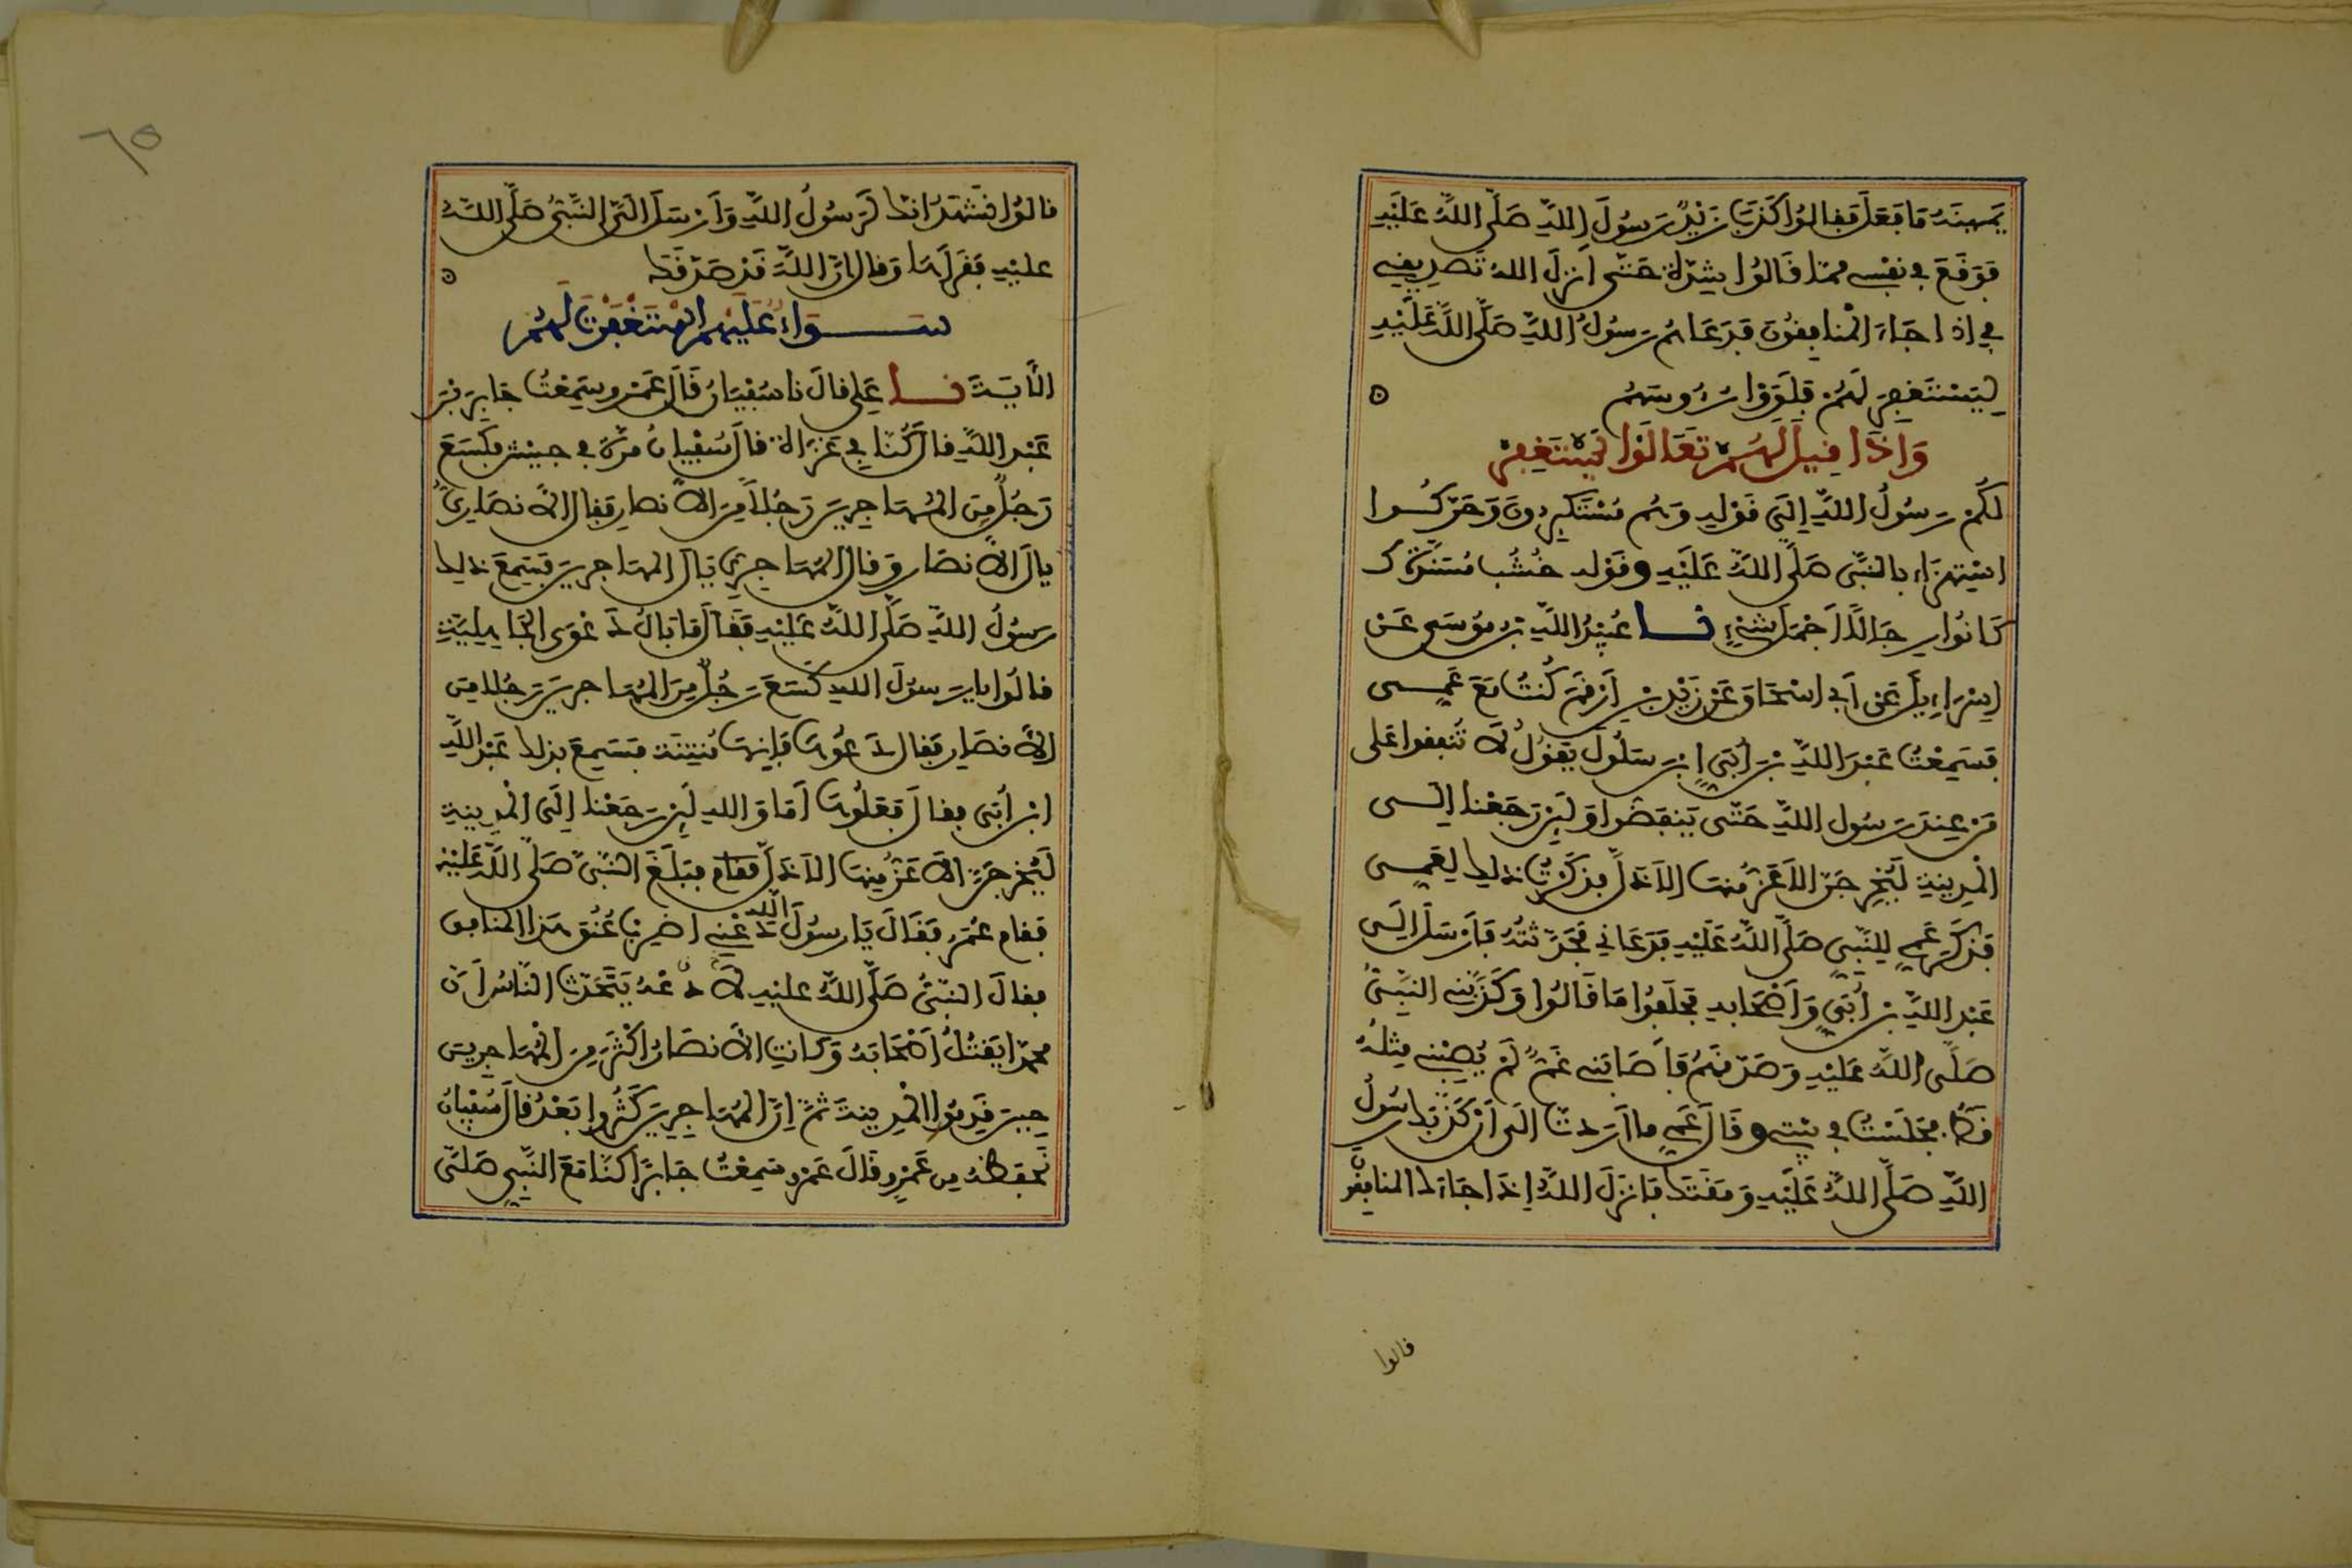 يمينه ما فعل فقالوا كذب زيد رسول الله صلى الله عليه
فوقع في نفسي مما قالوا شدة حتى أنزل الله تصديقي
في إذا جاءك المنافقون فدعاهم رسول الله صلى الله عليه
ليستغفر لهم فلووا رءوسهم
وإذا قيل لهم تعالوا يستغفر
لكم رسول الله إلى قوله وهم مستكبرون وحركوا
استهزاء بالنبي صلى الله عليه وقوله خشب مسندة
كانوا رجالا أجمل شيء نا عبيد الله بن موسى عن
إسرائيل عن أبي إسحاق عن زيد بن أرقم كنت مع عمي
فسمعت عبد الله بن أبي ابن سلول يقول لا تنفقوا على
من عند رسول الله حتى ينفضوا ولئن رجعنا إلى
المدينة ليخرجن الأعز منها الأذل فذكرت ذلك لعمي
فذكر عمي للنبي صلى الله عليه فدعاني فحدثته فأرسل إلى
عبد الله بن أبي وأصحابه فحلفوا ما قالوا وكذبني النبي
صلى الله عليه وصدقهم فأصابني غم لم يصبني مثله
قط فجلست في بيتي وقال عمي ما أردت إلى أن كذبك رسول
الله صلى الله عليه ومقتك فأنزل الله إذا جاءك المنافقون
قالوا
٦٥
قالوا نشهد إنك لرسول الله وأرسل إلي النبي صلى الله
عليه فقرأها وقال إن الله قد صدقك
سواء عليهم استغفرت لهم
الآية نا علي قال نا سفيان قال عمرو سمعت جابر بن
عبد الله قال كنا في غزاة قال سفيان مرة في جيش فكسع
رجل من المهاجرين رجلا من الأنصار فقال الأنصاري
يال الأنصار وقال المهاجري يال المهاجرين فسمع ذلك
رسول الله صلى الله عليه فقال ما بال دعوى الجاهلية
قالوا يا رسول الله كسع رجل من المهاجرين رجلا من
الأنصار فقال دعوها فإنها منتنة فسمع بذلك عبد الله
ابن أبي فقال فعلوها أما والله لئن رجعنا إلى المدينة
ليخرجن الأعز منها الأذل فقام فبلغ النبي صلى الله عليه
فقام عمر فقال يا رسول الله دعني أضرب عنق هذا المنافق
فقال النبي صلى الله عليه لا دعه يتحدث الناس أن
محمدا يقتل أصحابه وكانت الأنصار أكثر من المهاجرين
حين قدموا المدينة ثم إن المهاجرين كثروا بعد قال سفيان
تحفظته من عمرو قال عمرو سمعت جابرا كنا مع النبي صلى